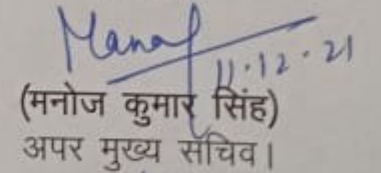 Manoj
11.12.21
(मनोज कुमार सिंह)
अपर मुख्य सचिव।